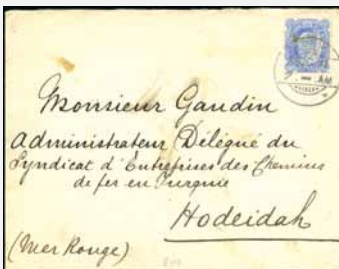 Monsieur Gaudin
Administrateur Délégué du
Syndicat d'Entreprises des Chemins
de fer en Turquie
Hodeidah
(Mer Rouge)